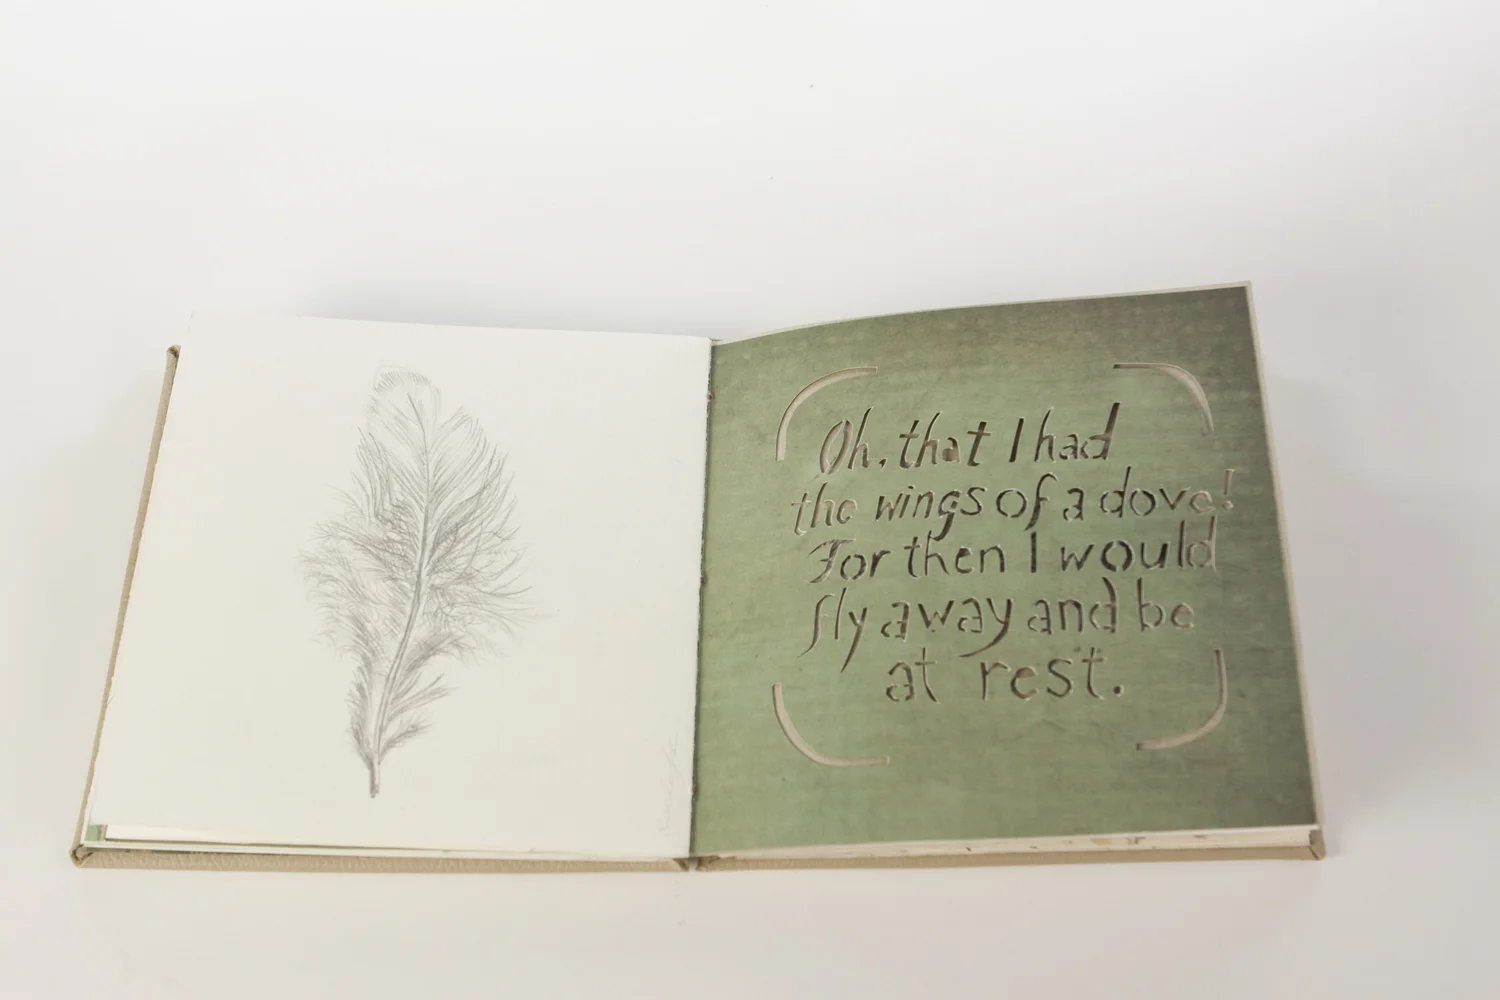 Oh, that I had
the wings of a dove!
For then I would
fly away and be
at rest.